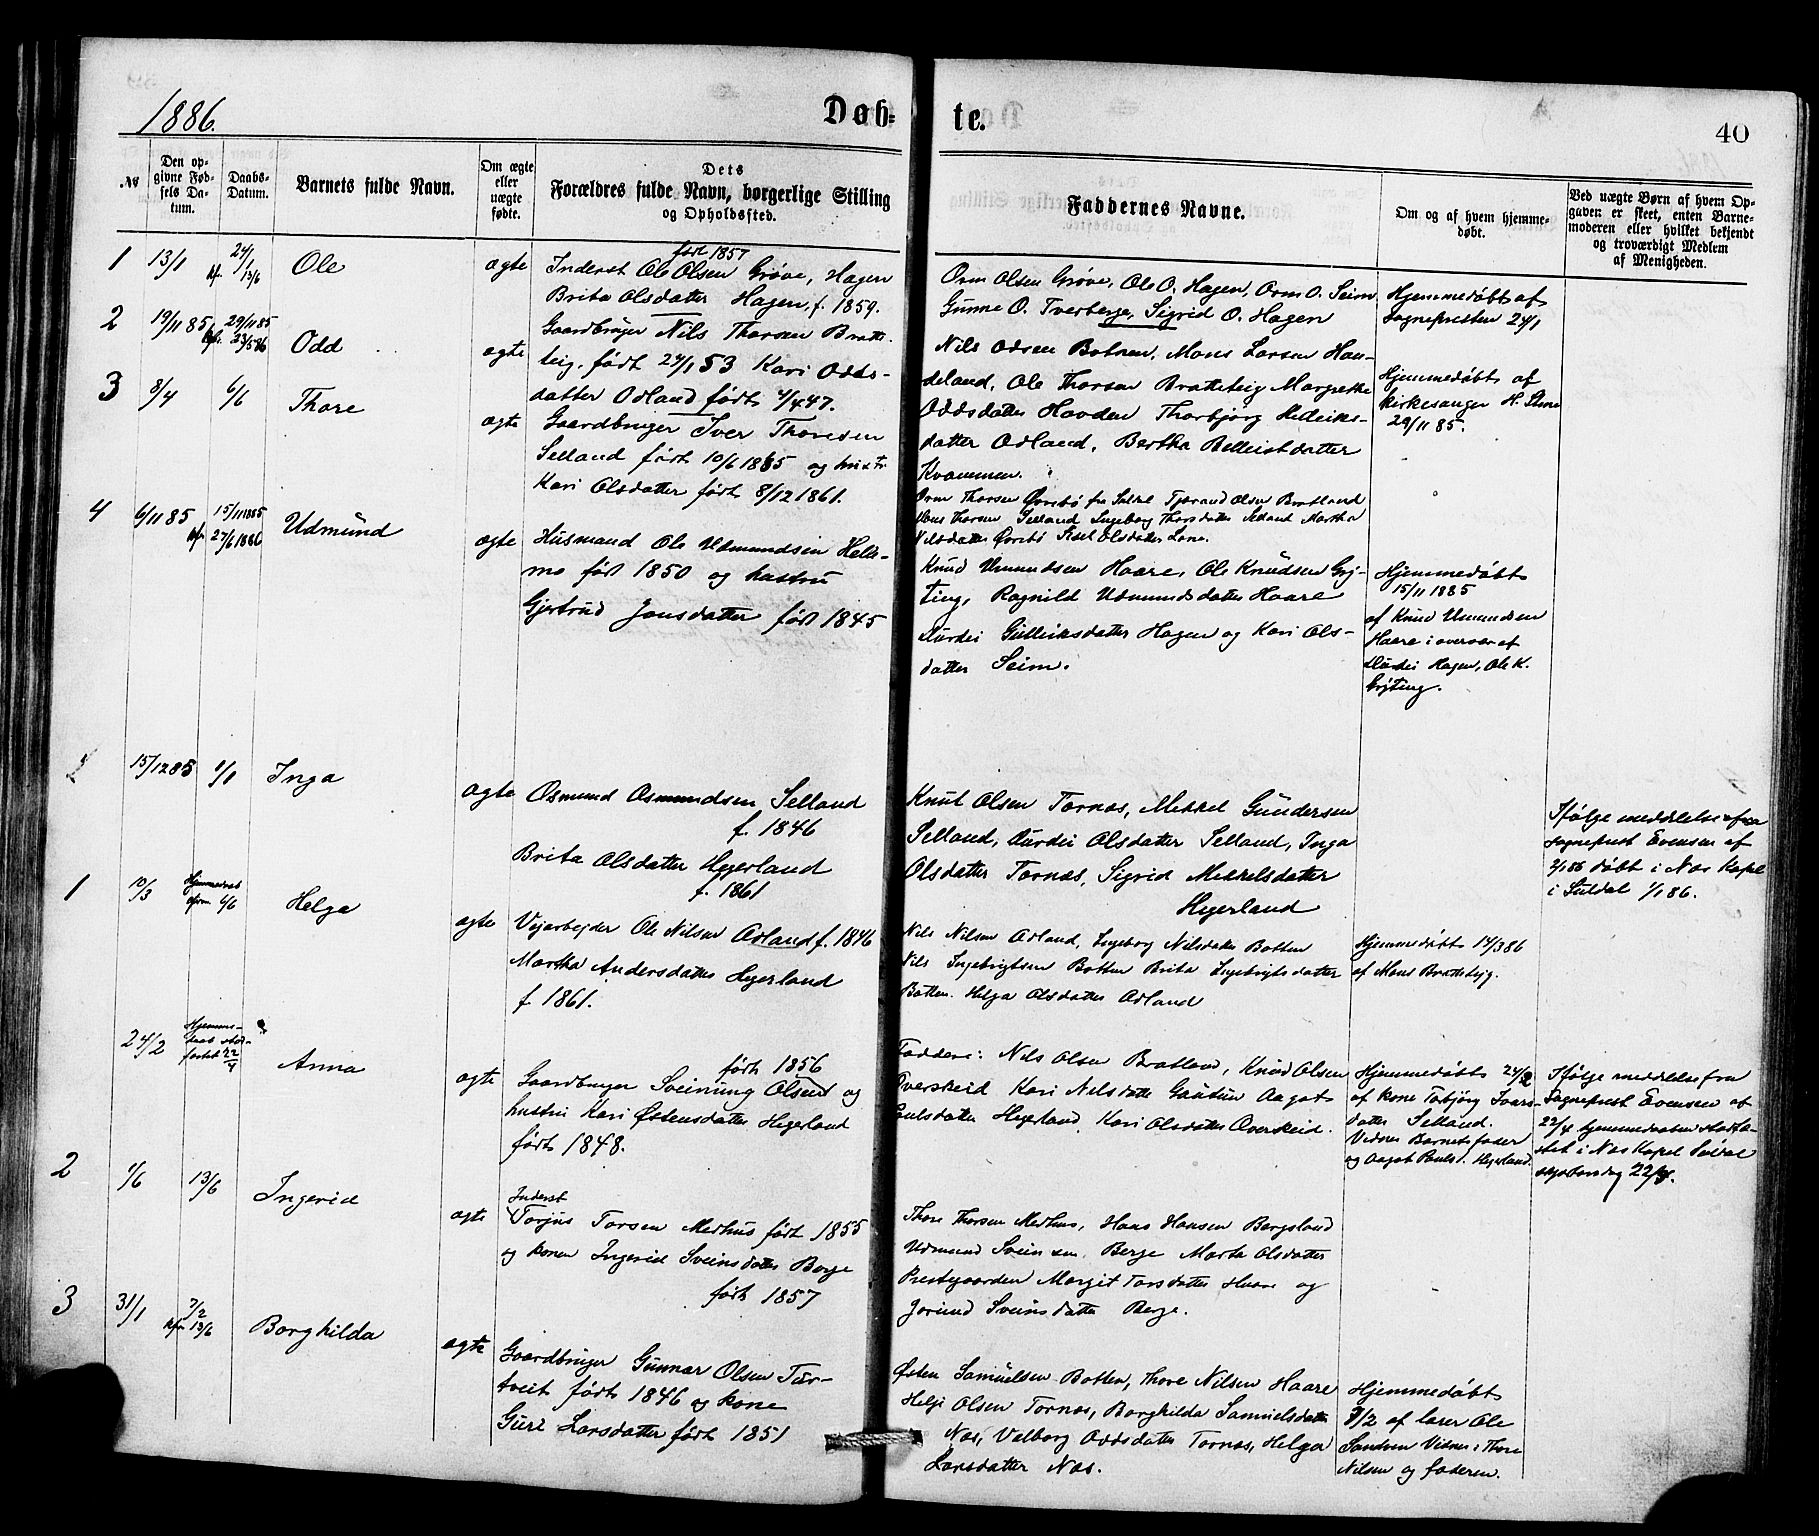 1886.
Døb-
te.
40
№
Den op-
givne Fød-
sels Da-
tum.
Daabs-
Datum.
Barnets fulde Navn.
Om ægte
eller
uægte
fødte.
Dets
Forældres fulde Navn, borgerlige Stilling
og Opholdssted.
Faddernes Navne.
Om og af hvem hjemme-
døbt.
Ved uægte Børn af hvem Op-
gaven er skeet, enten Barne-
moderen eller hvilket bekjendt
og troværdigt Medlem
af Menigheden.
1
13/1
24/1
13/6
Ole
ægte
født 1857
Inderst Ole Olsen Grøve, Hagen
Brita Olsdatter Hagen, f. 1859.
Orm Olsen Grøve, Ole O. Hagen, Orm O. Seim
Gunne O. Tverberge, Sigrid O. Hagen
Hjemmedøbt af
Sognepresten 24/1
2
19/11 85
29/11 85
23/5 86
Odd
ægte
Gaardbruger Nils Thorsen Bratte-
teig, født 24/1 53 Kari Odds-
datter Ørland født 4/4 47.
Nils Odsen Botnen, Mons Larsen Hau-
deland, Ole Thorsen Bratteteig Margrethe
Oddsdatter Hovden Thorbjørg Helleiks-
datter Ørland, Bertha Belleistdatter
Kvammen.
Hjemmedøbt af
Kirkesanger H. Stene
29/11 85.
3
8/4
6/6
Thore
ægte
Gaardbruger Iver Thoresen
Selland født 10/6 1865 og hustr
Kari Olsdatter født 8/12 1861.
Orm Thorsen Øvrebø fra Suldal Tjerand Olsen Bratland
Mons Thorsen Selland Ingeborg Thorsdatter Selland Martha
Nilsdatter Øvrebø Sisel Olsdatter Lone.
4
6/11 85
15/11 1885
27/6 1886
Udmund
ægte
Husmand Ole Udmundsen Helle-
mo født 1850 og hustru
Gjertrud Jonsdatter født 1845
Knud Umundsen Haare, Ole Knudsen Gry-
ting, Ragnild Udmundsdatter Haare
Durdei Gulleiksdatter Hagen og Kari Ols-
datter Seim.
Hjemmedøbt
15/11 1885
af Knud Umundsen
Haare i overvær af
Durdei Hagen, Ole K.
Gryting.
15/12 85
1/1
Inga
ægte
Osmund Osmundsen Selland
f. 1846
Brita Olsdatter Hegerland
f. 1861
Knut Olsen Tornæs, Mekkel Gundersen
Selland, Durdei Olsdatter Selland, Inga
Olsdatter Tornæs, Sigrid Mekkelsdatter
Hegerland
Ifølge meddelelse fra
Sogneprest Evensen af
2/1 86 døbt i Næs Kapel
i Suldal 1/1 86.
1
10/3
Hjemmedøbt
6/6
Helga
ægte
Vejarbejder Ole Nilsen Ørland f. 1846
Martha Andersdatter Hegerland
f. 1861.
Nils Nilsen Ørland, Ingeborg Nilsdatter Botten
Nils Ingebrigtsen Botten Brita Ingebrigtsdatter
Botten. Helga Olsdatter Ørland
Hjemmedøbt 14/3 86
af Mons Bratteteig.
24/2
Hjemme-
daab stad-
fæstet 22/4
Anna
ægte
født 1856
Gaardbruger Sveinung Olsen og
hustru Kari Østensdatter Hegerland
født 1848.
Faddere: Nils Olsen Bratland, Knud Olsen
Overskeid Kari Nilsdatter Gautun Aagot
Paulsdatter Hegerland, Kari Olsdatter Overskeid.
Hjemmedøbt 24/2
af kone Tobjørg Ivars-
datter Selland.
Vidner Barnets fader
og Aagot Pauls d. Hegerland.
Ifølge meddelelse fra
Sogneprest Evensen af
22/4 hjemmedaaben stadfæ-
stet i Næs Kapel Suldal
skjærtorsdag 22/4.
2
1/6
13/6
Ingerid
ægte
Inderst
Torjus Torsen Medhus født 1855
og konen Ingerid Sveinsdatter Berge
født 1857
Thore Thorsen Medhus, Hans Hansen Bergsland
Udmund Sveinsen Berge Marta Olsdatter
Prestgaarden Margit Torsdatter Haare og
Jorund Sveinsdatter Berge.
3
31/1
7/2
13/6
Borghilda
ægte
Gaardbruger Gunnar Olsen Tur-
tveit født 1846 og kone
Guri Larsdatter født 1851
Østen Samuelsen Botten, Thore Nilsen Haare
Helje Olsen Tornæs, Borghilda Samuelsdatter
Næs, Valborg Oddsdatter Tornæs, Helga
Larsdatter Næs.
Hjemmedøbt
7/2 af lærer Ole
Sandsen Vidner: Thore
Nilsen og faderen.